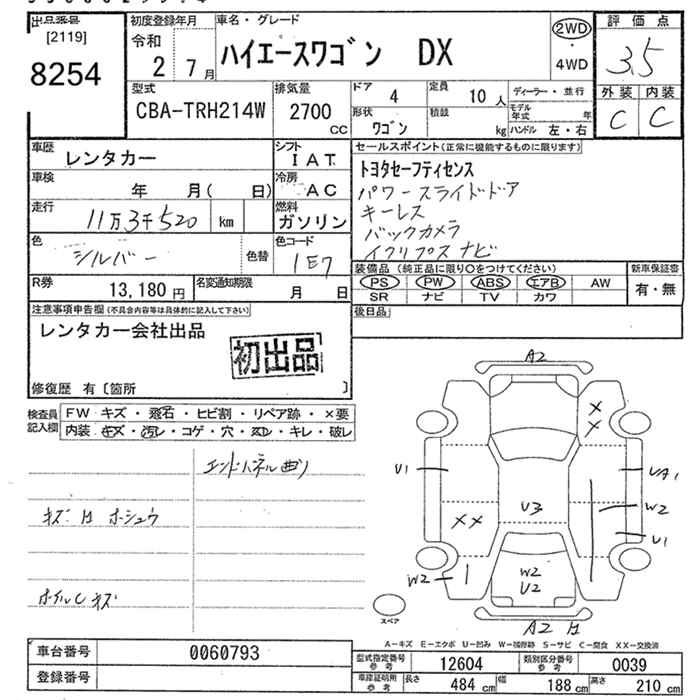 出品番号
[2119]
8254
初度登録年月
令和
2 7月
車名・グレード
ハイエースワゴン DX
2WD
・
4WD
評価点
3.5
外装 内装
C C
型式
CBA-TRH214W
排気量
2700
CC
ドア 4
定員 10人
ディーラー・並行
形状 ワゴン
積載 kg
モデル年式 年
ハンドル 左・右
車歴 レンタカー
シフト IAT
セールスポイント(正常に機能するものに限ります)
車検 年 月( 日)
冷房 AC
トヨタセーフティセンス
パワースライドドア
キーレス
バックカメラ
イクリプスナビ
走行 11万3千520 km
燃料 ガソリン
色 シルバー
色替
色コード 1E7
装備品(純正品に限り○をつけてください)
新車保証書
PS PW ABS エアB AW
有・無
SR ナビ TV カワ
R券 13,180円
名変通知期限 月 日
注意事項申告欄(不具合内容等は具体的に記入して下さい)
後日品
レンタカー会社出品
初出品
修復歴 有〔箇所 〕
検査員記入欄
FW キズ・飛石・ヒビ割・リペア跡・×要
内装 キズ・汚レ・コゲ・穴・スレ・キレ・破レ
エンドパネル曲リ
キズ H ホシュウ
ホイルCキズ
A2
X X
U1
UA1
W2
U3
XX
U1
W2
W2
U2
スペア
A2 H
A-キズ E-エクボ U-凹み W-補修跡 S-サビ C-腐食 XX-交換済
車台番号 0060793
登録番号
型式指定番号参考 12604
類別区分番号参考 0039
車庫証明用参考 長さ 484cm 幅 188cm 高さ 210cm